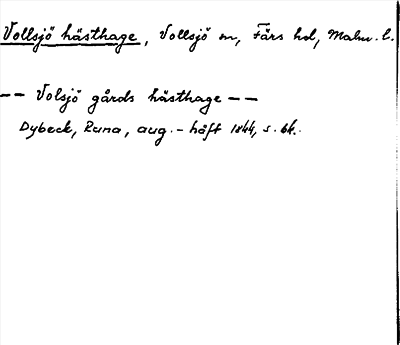 Vollsjö hästhage, Vollsjö sn, Färs hd, Malm. l.
-- Volsjö gårds hästhage --
Dybeck, Runa, aug.-häft 1844, s. 64.